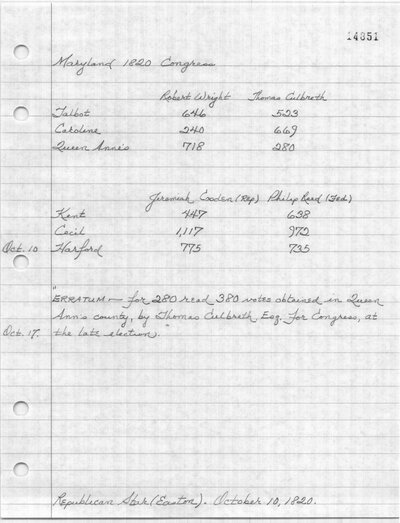 14851
Maryland 1820 Congress
Robert Wright Thomas Culbreth
Talbot 646 523
Caroline 240 669
Queen Anne's 718 280
Jeremiah Cosden (Rep) Philip Reed (Fed)
Kent 447 638
Cecil 1,117 972
Oct. 10 Harford 775 735
"ERRATUM — for 280 read 380 votes obtained in Queen
Ann's county, by Thomas Culbreth Esq. for Congress, at
Oct. 17. the late election."
Republican Star (Easton). October 10, 1820.